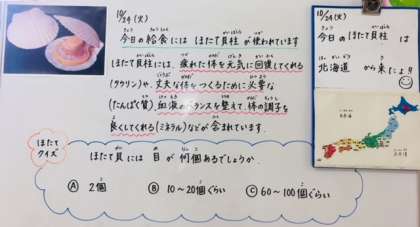 10/24(火)
今日の給食には ほたて貝柱 が使われています
ほたて貝柱には、疲れた体を元気に回復してくれる
(タウリン)や、丈夫な体をつくるために大事な
(たんぱく質) 血液のバランスを整えて、体の調子を
良くしてくれる(ミネラル)などが含まれています。
ほたて
クイズ
ほたて貝には 目 が何個あるでしょうか。
Ⓐ 2個
Ⓑ 10〜20個ぐらい
Ⓒ 60〜100個ぐらい
10/24(火)
今日のほたて貝柱 は
北海道 から来たよ!!